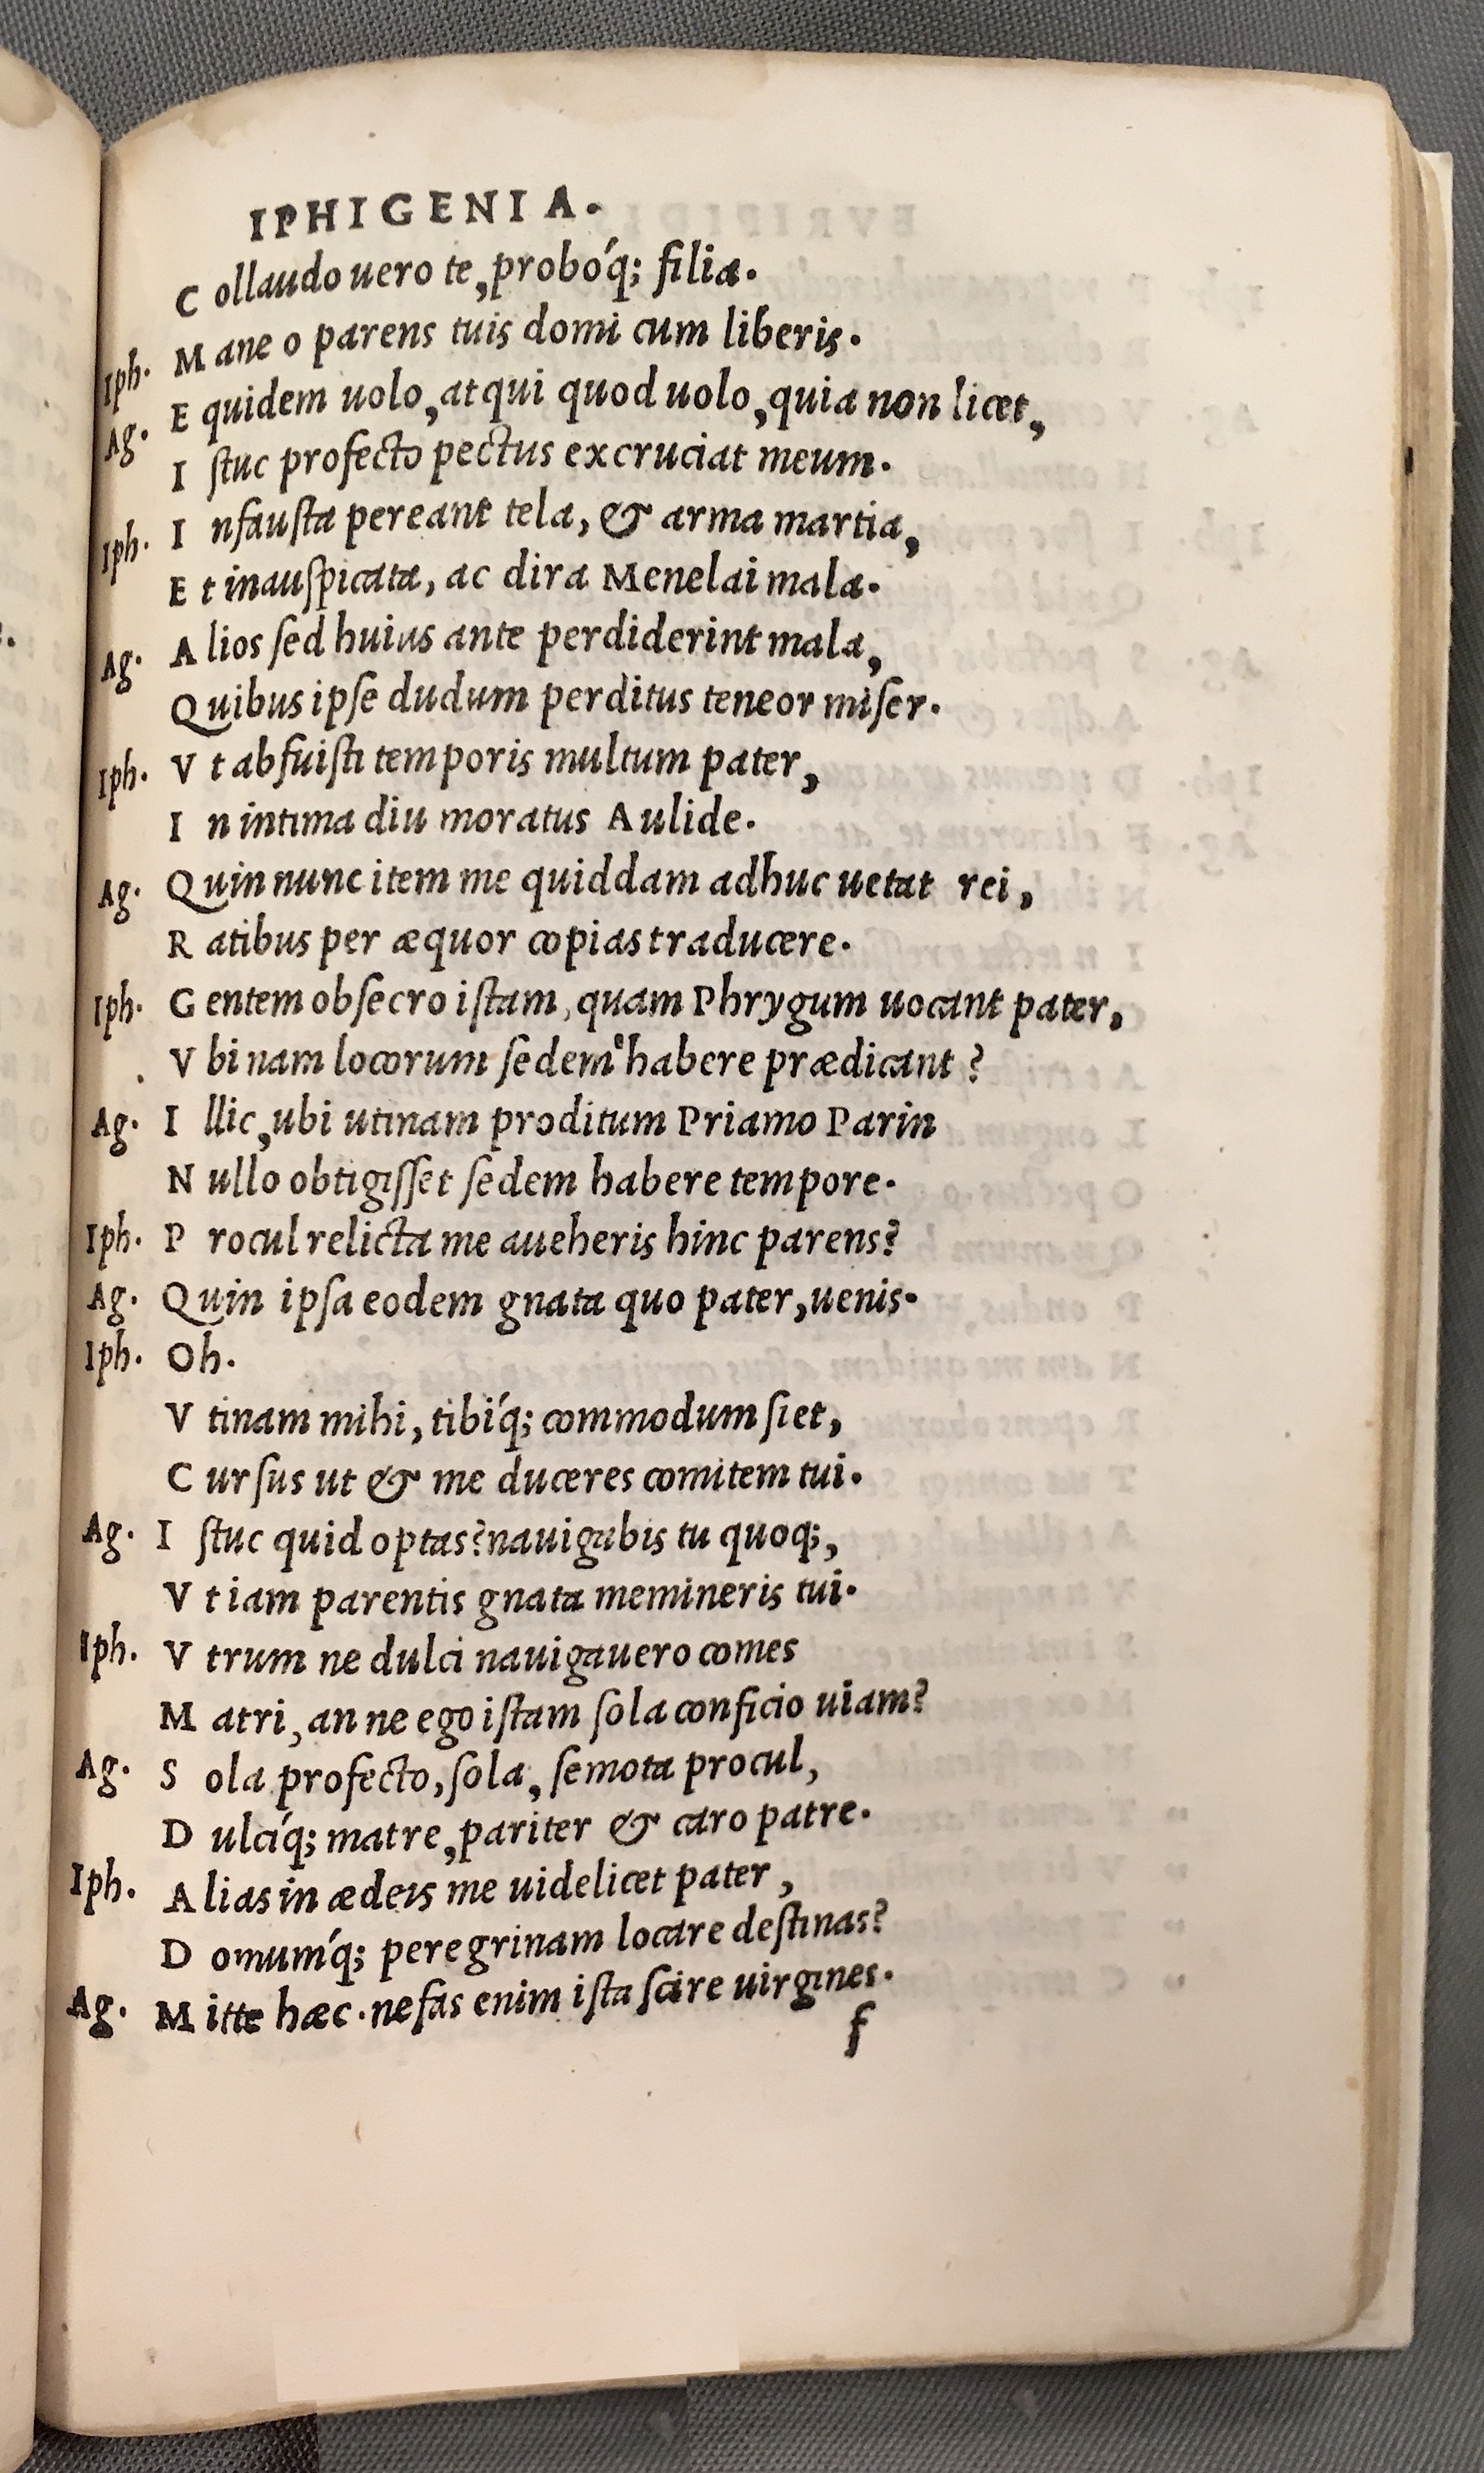 IPHIGENIA.
C ollaudo uero te, probóq; filia.
Iph. M ane o parens tuis domi cum liberis.
Ag. E quidem uolo, atqui quod uolo, quia non licet,
I ſtuc profecto pectus excruciat meum.
Iph. I nfauſta pereant tela, & arma martia,
E t inauſpicata, ac dira Menelai mala.
Ag. A lios ſed huius ante perdiderint mala,
Q uibus ipſe dudum perditus teneor miſer.
Iph. V t abfuiſti temporis multum pater,
I n intima diu moratus Aulide.
Ag. Q uin nunc item me quiddam adhuc uetat rei,
R atibus per æquor copias traducere.
Iph. G entem obſecro iſtam, quam Phrygum uocant pater,
V bi nam locorum ſedem habere prædicant?
Ag. I llic, ubi utinam proditum Priamo Parin
N ullo obtigiſſet ſedem habere tempore.
Iph. P rocul relicta me aueheris hinc parens?
Ag. Q uin ipſa eodem gnata quo pater, uenis.
Iph. Oh.
V tinam mihi, tibíq; commodum ſiet,
C urſus ut & me duceres comitem tui.
Ag. I ſtuc quid optas? nauigabis tu quoq;,
V t iam parentis gnata memineris tui.
Iph. V trum ne dulci nauigauero comes
M atri, an ne ego iſtam ſola conficio uiam?
Ag. S ola profecto, ſola, ſemota procul,
D ulcíq; matre, pariter & caro patre.
Iph. A lias in ædeis me uidelicet pater,
D omumq́; peregrinam locare deſtinas?
Ag. M itte hæc. nefas enim iſta ſcire uirgines.
f